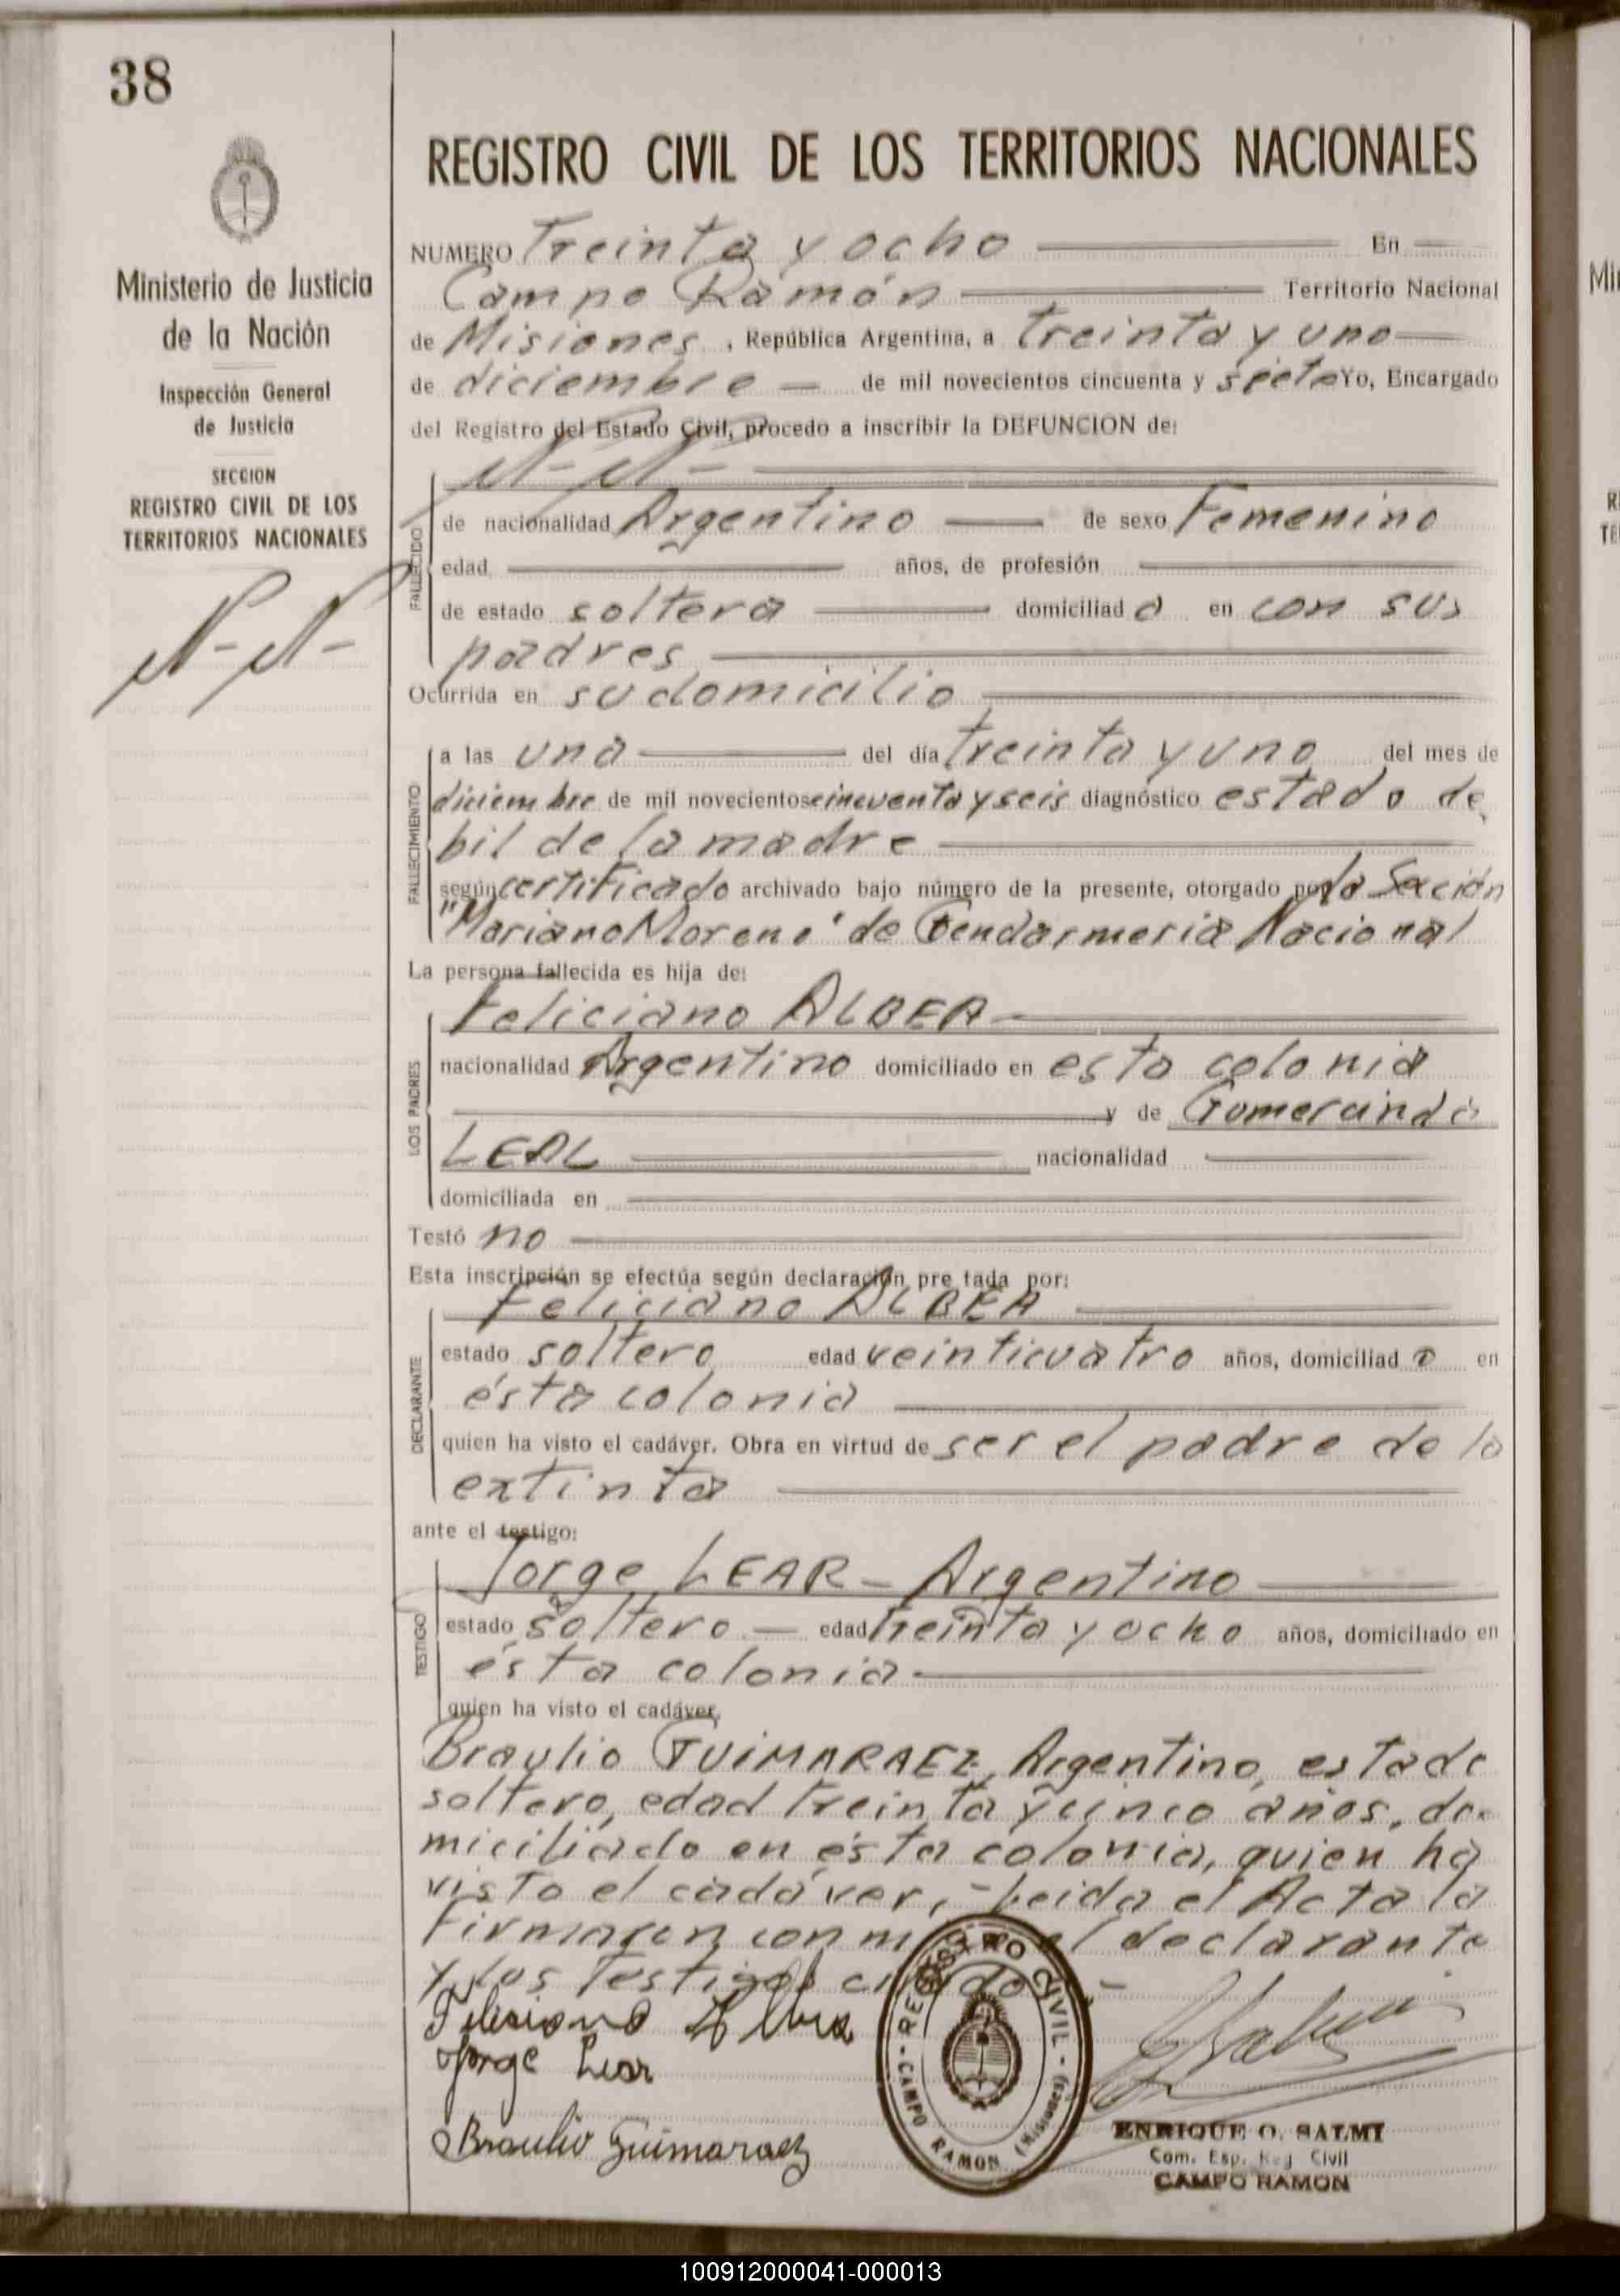 38
Ministerio de Justicia
de la Nación
Inspección General
de Justicia
SECCION
REGISTRO CIVIL DE LOS
TERRITORIOS NACIONALES
N-N-
REGISTRO CIVIL DE LOS TERRITORIOS NACIONALES
NUMERO Treinta y ocho En
Campo Ramón Territorio Nacional
de Misiones, República Argentina, a treinta y uno
de diciembre de mil novecientos cincuenta y siete Yo, Encargado
del Registro del Estado Civil, procedo a inscribir la DEFUNCION de:
N-N-
FALLECIDO
de nacionalidad Argentino de sexo Femenino
edad años, de profesión
de estado soltera domiciliad a en con sus
padres
Ocurrida en su domicilio
FALLECIMIENTO
a las una del día treinta y uno del mes de
diciembre de mil novecientos cincuenta y seis diagnóstico estado de
bil de la madre
según certificado archivado bajo número de la presente, otorgado por la Sección
"Mariano Moreno" de Gendarmeria Nacional
La persona fallecida es hija de:
LOS PADRES
Feliciano ALBEA
nacionalidad Argentino domiciliado en esta colonia
y de Gumercinda
LEAL nacionalidad
domiciliada en
Testó no
Esta inscripción se efectúa según declaración pre tada por:
DECLARANTE
Feliciano ALBEA
estado soltero edad veinticuatro años, domiciliad o en
ésta colonia
quien ha visto el cadáver. Obra en virtud de ser el padre de la
extinta
ante el testigo:
TESTIGO
Jorge LEAR - Argentino
estado soltero - edad treinta y ocho años, domiciliado en
ésta colonia
quien ha visto el cadáver.
Braulio GUIMARAEZ, Argentino, estado
soltero, edad treinta y cinco años, do-
miciliado en ésta colonia, quien ha
visto el cadáver, - Leida el Acta la
Firmaron con el declarante
y los Testigos
Feliciano Albea
Jorge Lear
Braulio Guimaraez
REGISTRO CIVIL - CAMPO RAMON (Misiones)
ENRIQUE O. SALMI
Com. Esp. Reg Civil
CAMPO RAMON
100912000041-000013